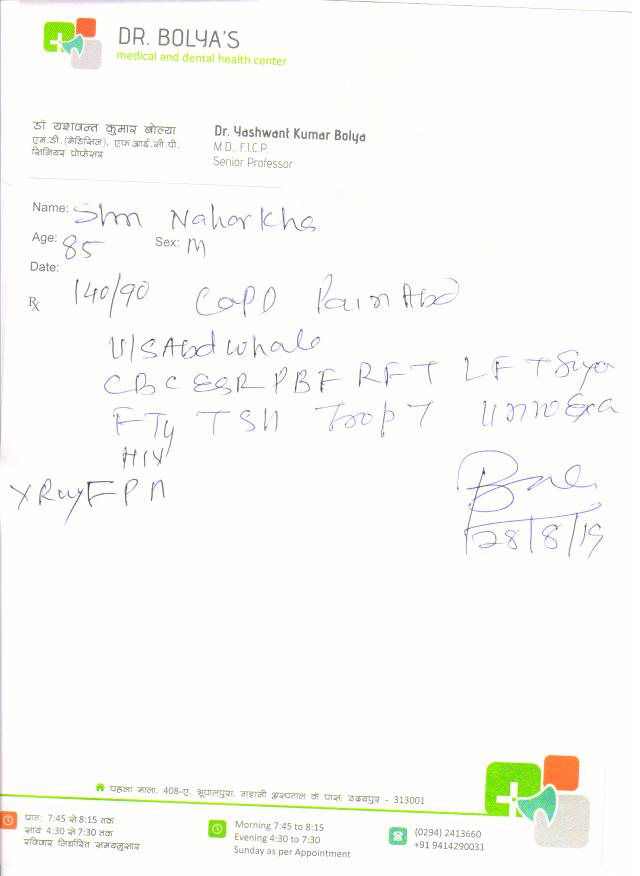 DR. BOLYA'S
medical and dental health center
डॉ यशवन्त कुमार बोल्या
एम.डी.(मेडिसिन), एफ.आई.सी.पी.
सिनियर प्रोफेसर
Dr. Yashwant Kumar Bolya
M.D., F.I.C.P.
Senior Professor
Name: Shrn Naharkha
Age: 85 Sex: M
Date:
℞ 140/90 COPD Pain Abd
U/S Abd whole
CBC ESR PBF RFT LFT
TSH Trop T
HIV
X Ray
28/8/19
पहला माला, 408-ए, भूपालपुरा, उदयपुर - 313001
प्रातः 7:45 से 8:15 तक
सायं 4:30 से 7:30 तक
रविवार निर्धारित समयनुसार
Morning 7:45 to 8:15
Evening 4:30 to 7:30
Sunday as per Appointment
(0294) 2413660
+91 9414290031